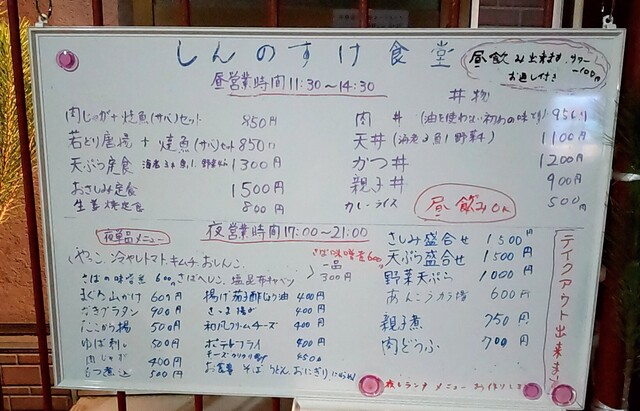 しんのすけ食堂
昼飲み出来ます サワー
お通し付き
昼営業時間 11:30～14:30
肉じゃが+焼魚(サバ)セット 850円
若どり唐揚+焼魚(サバ)セット 850円
天ぷら定食 海老3ヶ魚1野菜4ヶ 1300円
おさしみ定食 1500円
生姜焼定食 800円
丼物
肉丼(油を使わない初めの味です) 950円
天丼(海老3魚1野菜4) 1100円
かつ丼 1200円
親子丼 900円
カレーライス 500円
昼飲みOK
夜営業時間 17:00～21:00
夜単品メニュー
やっこ 冷やしトマト、キムチ、おしんこ
さばの味噌煮 600円
一品 300円
さばの味噌煮 600 さばへしこ、塩昆布キャベツ
まぐろ山かけ 600円
なすグラタン 900円
500円
ゆば刺し 500円
肉じゃが 400円
もつ煮込 500円
揚げ茄子酢じょう油 400円
400円
和風クリームチーズ 400円
ポテトフライ 400円
お食事 そば うどん、おにぎり
さしみ盛合せ 1500円
天ぷら盛合せ 1500円
野菜天ぷら 1000円
あんこうカラ揚 600円
親子煮 750円
肉どうふ 700円
テイクアウト出来ます
夜もランチメニューお作りします